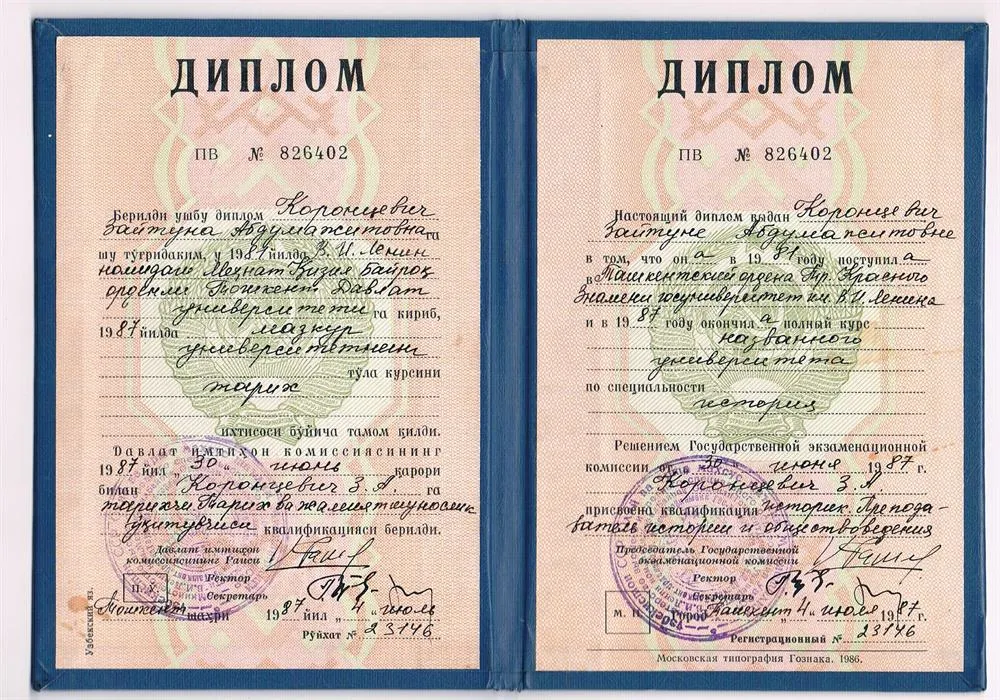 ДИПЛОМ
ПВ № 826402
Берилди ушбу диплом Коронцевич
Зайтуна Абдумажитовнага
шу тўғридаким, у 1981 йилда В.И. Ленин
номидаги Меҳнат Қизил Байроқ
орденли Тошкент Давлат
университети га кириб,
1987 йилда мазкур
университетнинг
тўла курсини
тарих
ихтисоси бўйича тамом қилди.
Давлат имтихон комиссиясининг
1987 йил „30„ июнь қарори
билан Коронцевич З. А. га
тарихчи. Тарих ва жамиятшунослик
ўқитувчиси квалификацияси берилди.
Давлат имтихон
комиссиясининг Раиси
Ректор
Секретарь
П. Х.
Тошкент шаҳри 1987 йил „4„ июль
Рўйхат № 23146
Узбекский яз.
ДИПЛОМ
ПВ № 826402
Настоящий диплом выдан Коронцевич
Зайтуне Абдумажитовне
в том, что он а в 1981 году поступил а
в Ташкентский ордена Тр. Красного
Знамени госуниверситет им. В.И. Ленина
и в 1987 году окончил а полный курс
названного
университета
по специальности
история
Решением Государственной экзаменационной
комиссии от „30„ июня 1987 г.
Коронцевич З. А
присвоена квалификация историк. Препода-
ватель истории и обществоведения
Председатель Государственной
экзаменационной комиссии
Ректор
Секретарь
М. П.
Город Ташкент „4„ июля 1987 г.
Регистрационный № 23146
Московская типография Гознака. 1986.